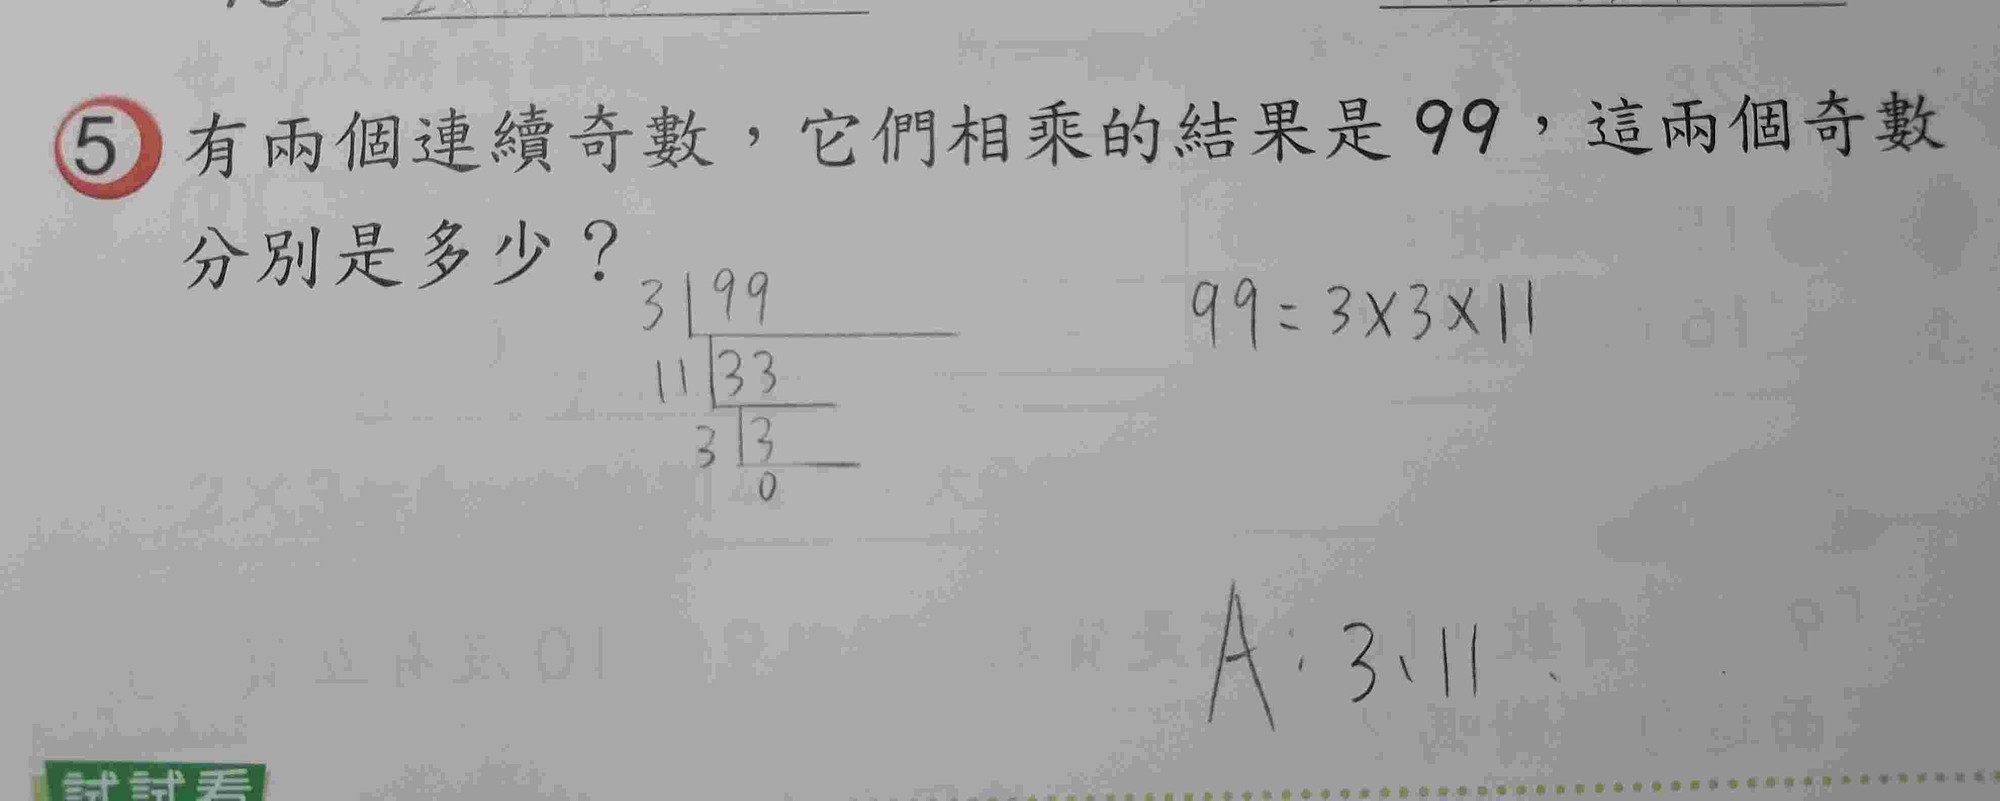 5 有兩個連續奇數，它們相乘的結果是99，這兩個奇數
分別是多少？
3 99
11 33
3 3
0
99=3×3×11
A：3、11
試試看